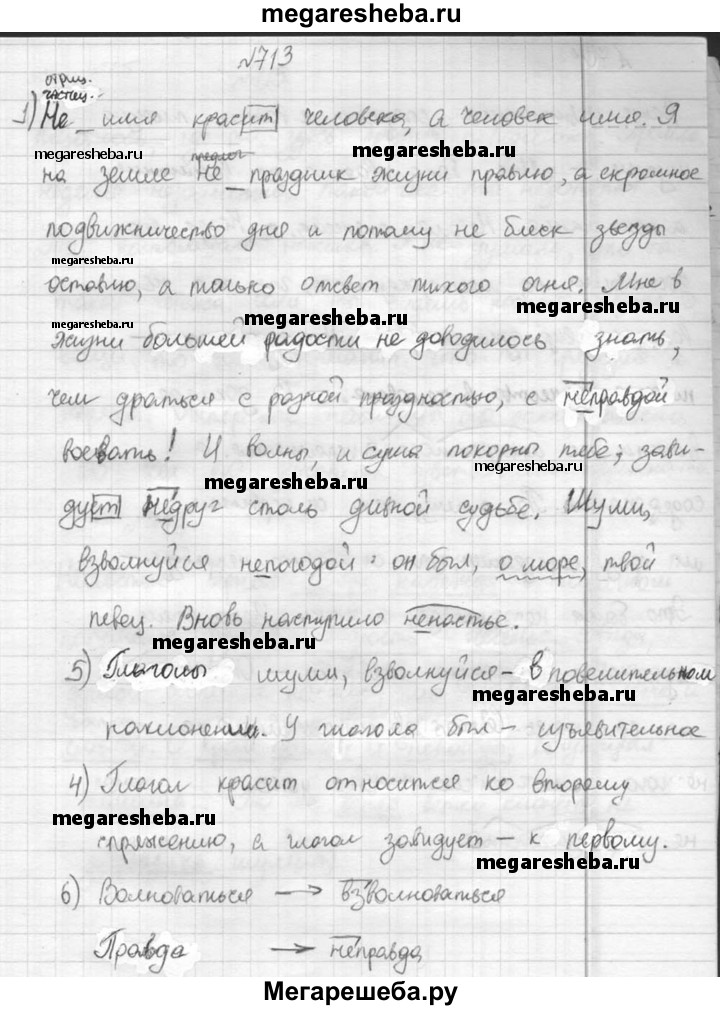 megaresheba.ru
№713
отриц.
частиц.
1) Не имя красит человека, а человек имя. Я
megaresheba.ru предлог megaresheba.ru
на земле не праздник жизни правлю, а скромное
подвижничество дня и потому не блеск звезды
megaresheba.ru
оставлю, а только отсвет тихого огня. Мне в
megaresheba.ru megaresheba.ru megaresheba.ru
жизни большей радости не доводилось знать,
чем драться с разной праздностью, с неправдой
воевать! И волны, и суша покорны тебе; зави-
megaresheba.ru
дует недруг столь дивной судьбе. Шуми,
взволнуйся непогодой: он был, о море, твой
певец. Вновь наступило ненастье.
megaresheba.ru
5) Глаголы шуми, взволнуйся - в повелительном
megaresheba.ru
наклонении. У глагола был - изъявительное
4) Глагол красит относится ко второму
megaresheba.ru
спряжению, а глагол завидует - к первому.
megaresheba.ru
6) Волноваться → взволноваться
Правда → неправда
Мегарешеба.ру